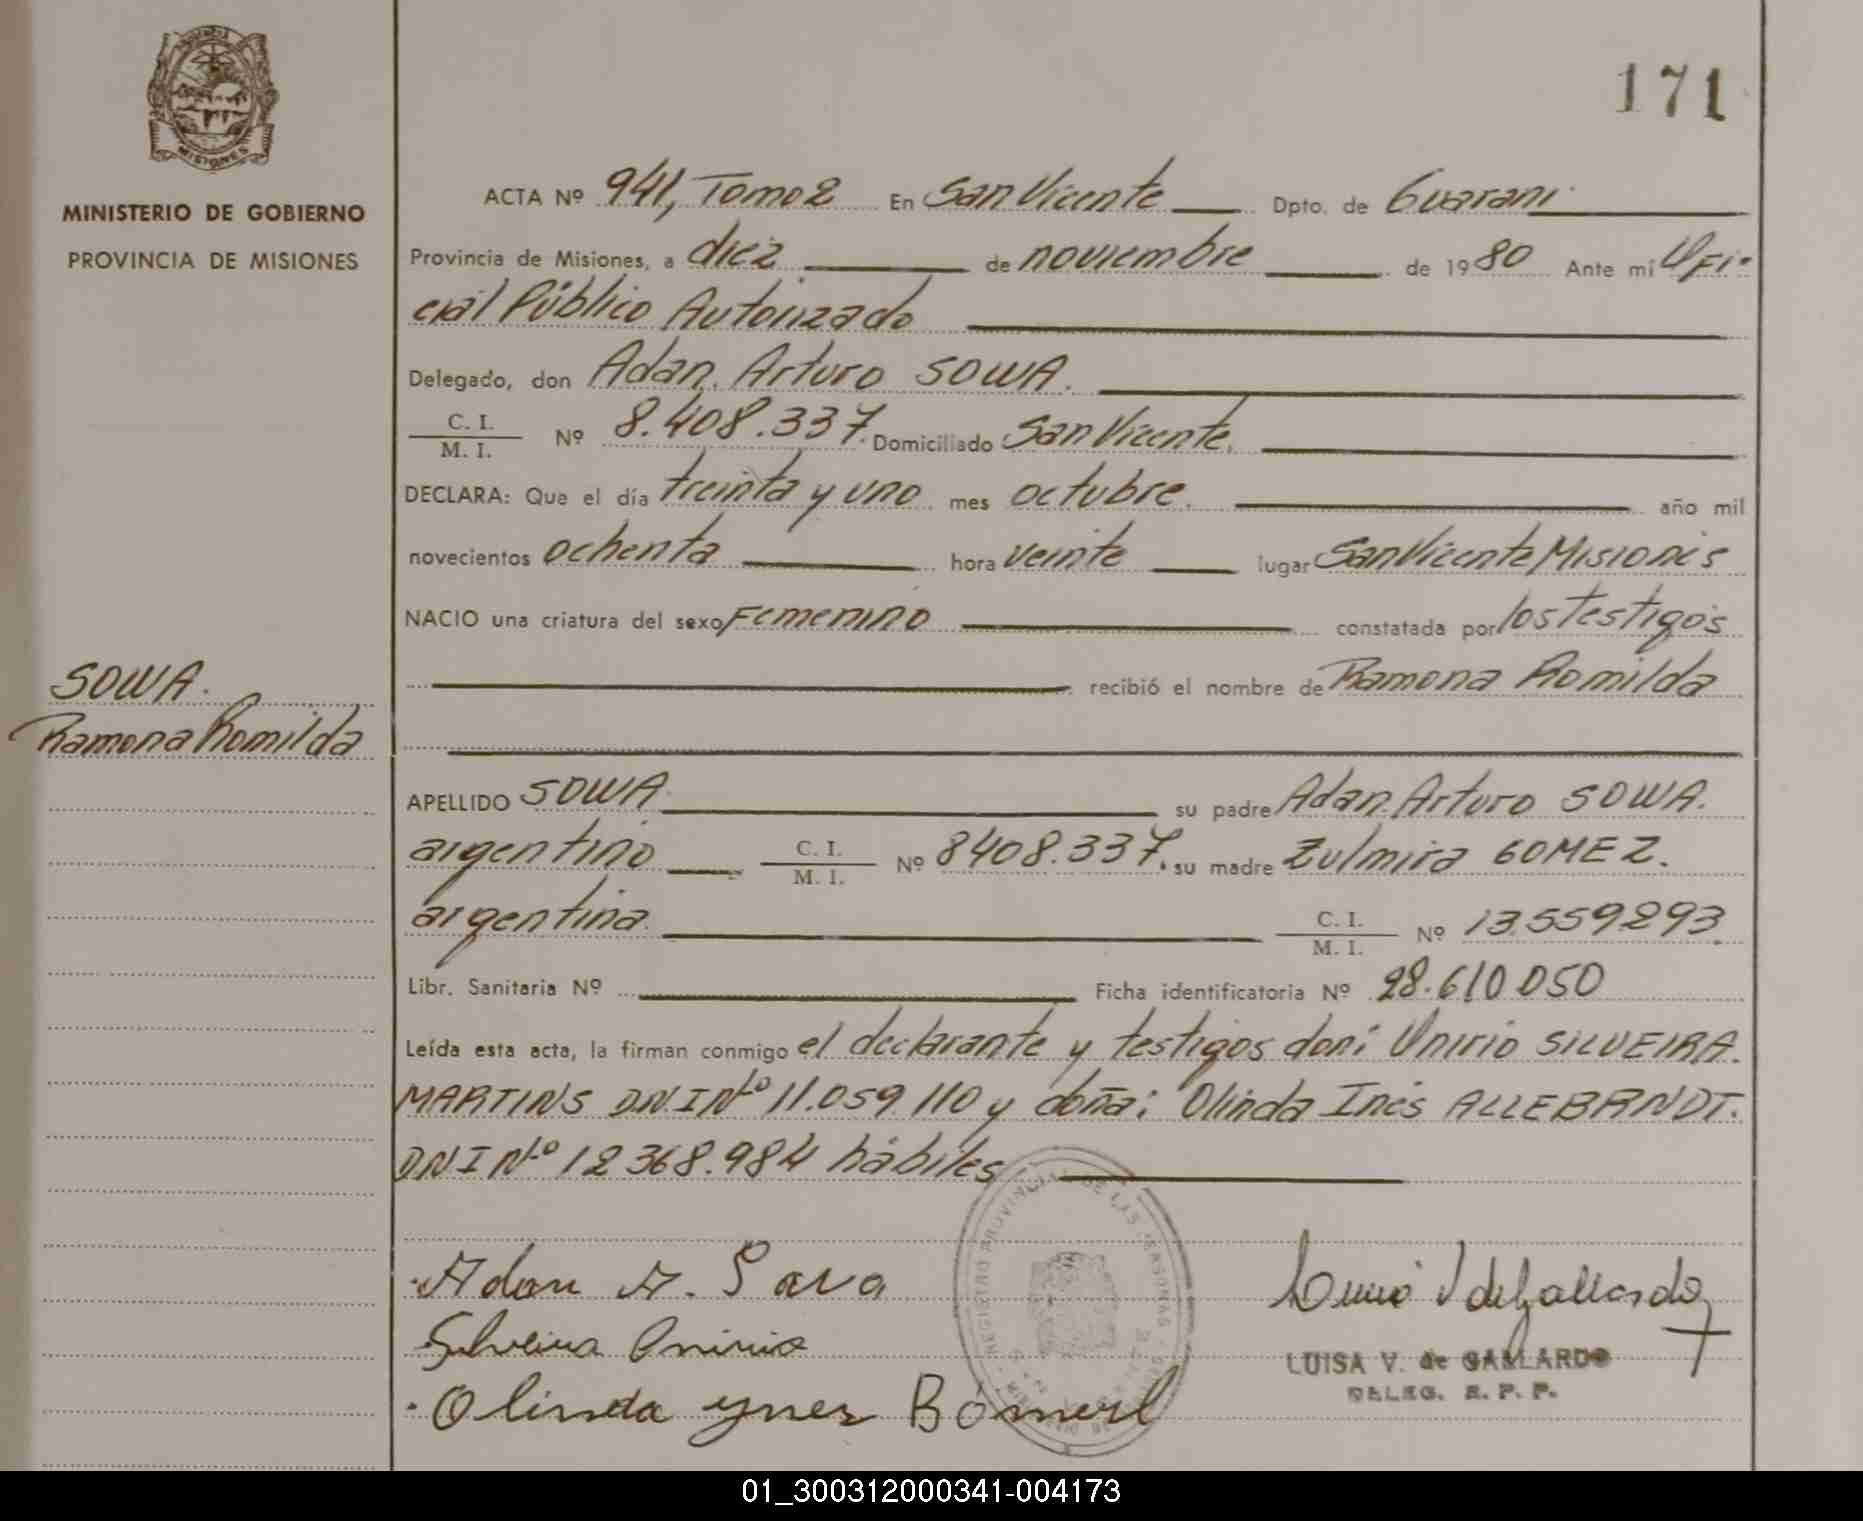 171
MISIONES
MINISTERIO DE GOBIERNO
PROVINCIA DE MISIONES
ACTA Nº 941, Tomo 2 En San Vicente Dpto. de Guarani
Provincia de Misiones, a diez de noviembre de 1980 Ante mi Ofi-
cial Público Autorizado
Delegado, don Adan Arturo SOWA.
C. I.
M. I. Nº 8.408.337. Domiciliado San Vicente.
DECLARA: Que el día treinta y uno mes octubre. año mil
novecientos ochenta hora veinte lugar San Vicente Misiones
NACIO una criatura del sexo Femenino constatada por los testigos
recibió el nombre de Ramona Romilda
SOWA.
Ramona Romilda
APELLIDO SOWA su padre Adan Arturo SOWA.
argentino C. I.
M. I. Nº 8408.337. su madre Zulmira GOMEZ.
argentina C. I.
M. I. Nº 13.559293.
Libr. Sanitaria Nº Ficha identificatoria Nº 28.610.050
Leída esta acta, la firman conmigo el declarante y testigos don: Onirio SILVEIRA
MARTINS DNI Nº 11.059.110 y doña: Olinda Inés ALLEBRANDT.
DNI Nº 12368.984 hábiles
Adan A. Sava
Silveira Onirio
Olinda ynes
LUISA V. de GALLARDO
DELEG. R. P. P.
REGISTRO PROVINCIAL DE LAS PERSONAS
01_300312000341-004173